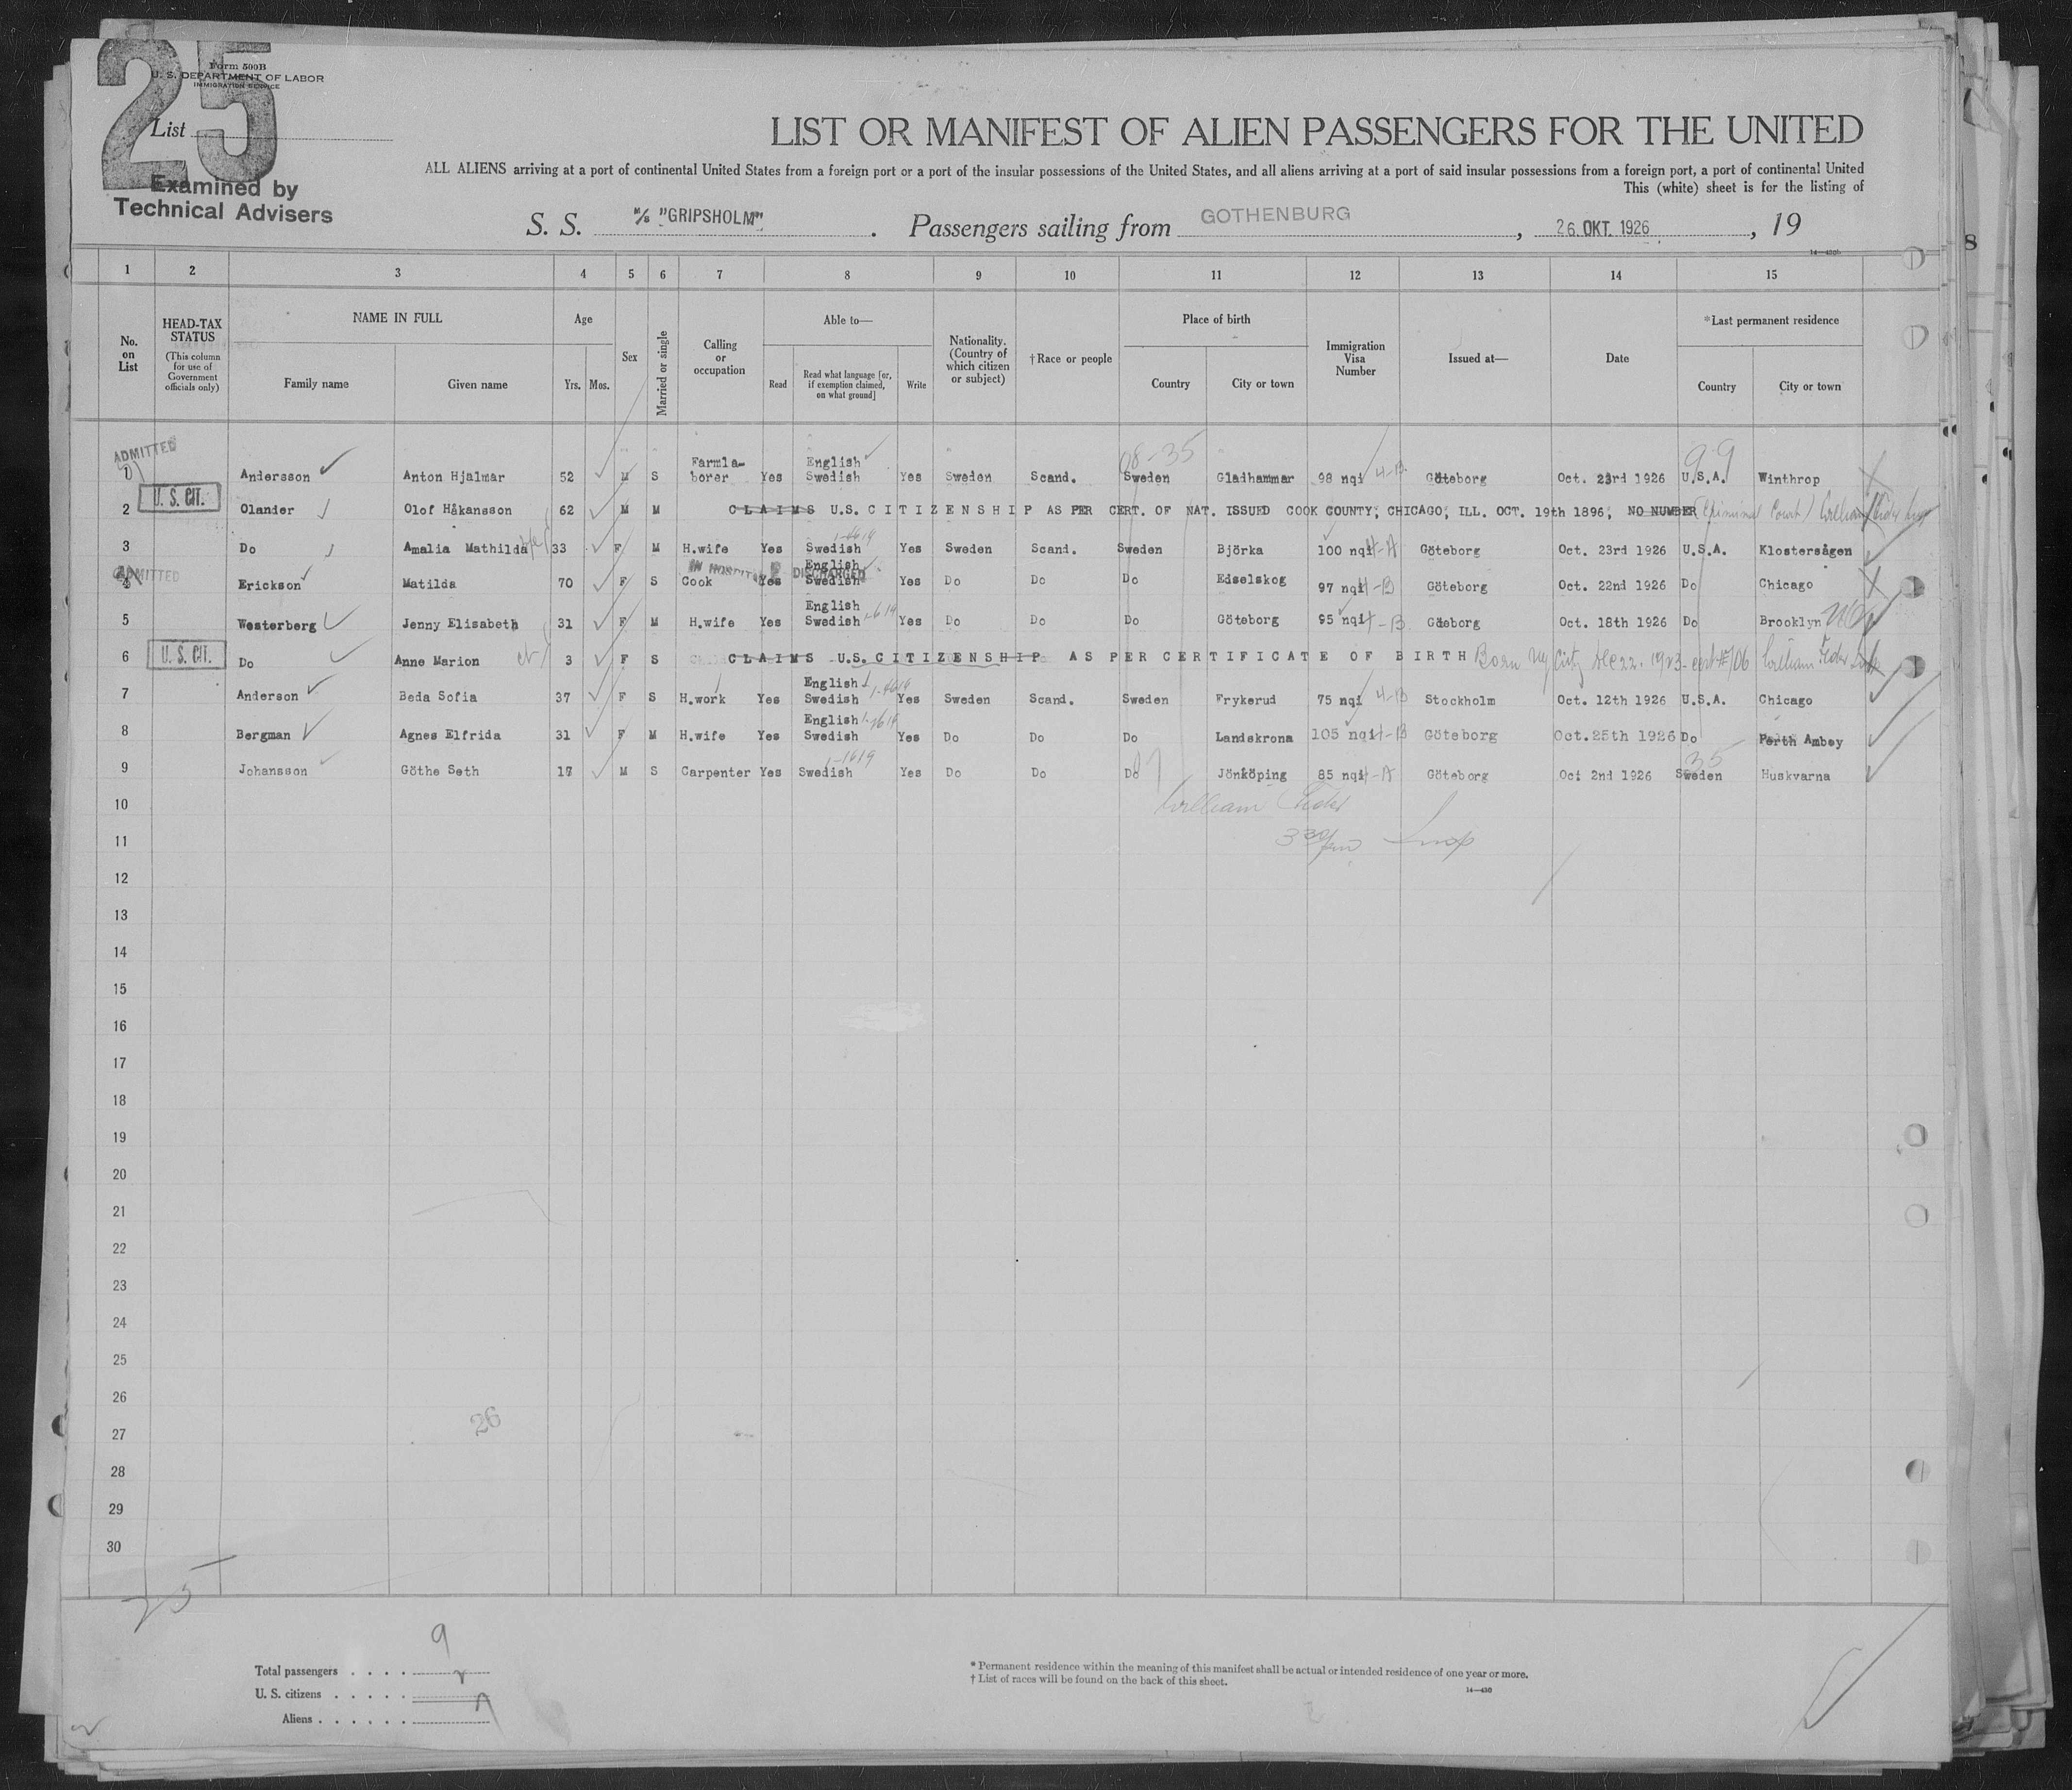 25
Form 500B
U. S. DEPARTMENT OF LABOR
IMMIGRATION SERVICE
List
Examined by
Technical Advisers
LIST OR MANIFEST OF ALIEN PASSENGERS FOR THE UNITED
ALL ALIENS arriving at a port of continental United States from a foreign port or a port of the insular possessions of the United States, and all aliens arriving at a port of said insular possessions from a foreign port, a port of continental United
This (white) sheet is for the listing of
S. S. M/S "GRIPSHOLM" . Passengers sailing from GOTHENBURG , 26. OKT. 1926 , 19
14—430b
8
1 2 3 4 5 6 7 8 9 10 11 12 13 14 15
No. on List
HEAD-TAX STATUS
(This column for use of Government officials only)
NAME IN FULL
Family name Given name
Age
Yrs. Mos.
Sex
Married or single
Calling or occupation
Able to—
Read
Read what language [or, if exemption claimed, on what ground]
Write
Nationality. (Country of which citizen or subject)
†Race or people
Place of birth
Country City or town
Immigration Visa Number
Issued at—
Date
*Last permanent residence
Country City or town
ADMITTED 08-35 99
1 Andersson Anton Hjalmar 52 M S Farmla-borer Yes English Swedish Yes Sweden Scand. Sweden Gladhammar 98 nqi 4-B Göteborg Oct. 23rd 1926 U.S.A. Winthrop
2 U. S. CIT. Olander Olof Håkansson 62 M M CLAIMS U.S. CITIZENSHIP AS PER CERT. OF NAT. ISSUED COOK COUNTY, CHICAGO, ILL. OCT. 19th 1896, NO NUMBER (Criminal Court)
3 Do Amalia Mathilda 33 F M H.wife Yes Swedish Yes Sweden Scand. Sweden Björka 100 nqi 4-A Göteborg Oct. 23rd 1926 U.S.A. Klostersågen
IN HOSPITAL DISCHARGED
4 ADMITTED Erickson Matilda 70 F S Cook Yes English Swedish Yes Do Do Do Edselskog 97 nqi 4-B Göteborg Oct. 22nd 1926 Do Chicago
5 Westerberg Jenny Elisabeth 31 F M H.wife Yes English Swedish Yes Do Do Do Göteborg 95 nqi 4-B Göeborg Oct. 18th 1926 Do Brooklyn
6 U. S. CIT. Do Anne Marion 3 F S CLAIMS U.S. CITIZENSHIP AS PER CERTIFICATE OF BIRTH Born NY City Dec 22. 1923 - cert #106 William
7 Anderson Beda Sofia 37 F S H.work Yes English Swedish Yes Sweden Scand. Sweden Frykerud 75 nqi 4-B Stockholm Oct. 12th 1926 U.S.A. Chicago
8 Bergman Agnes Elfrida 31 F M H.wife Yes English Swedish Yes Do Do Do Landskrona 105 nqi 4-B Göteborg Oct.25th 1926 Do Perth Amboy
35
9 Johansson Göthe Seth 17 M S Carpenter Yes Swedish Yes Do Do Do Jönköping 85 nqi 4-A Göteborg Oct 2nd 1926 Sweden Huskvarna
10 William
11 330 pm Insp
12
13
14
15
16
17
18
19
20
21
22
23
24
25
26
27 26
28
29
30
25
9
Total passengers . . . .
U. S. citizens . . . . .
Aliens . . . . . .
* Permanent residence within the meaning of this manifest shall be actual or intended residence of one year or more.
† List of races will be found on the back of this sheet.
14—430